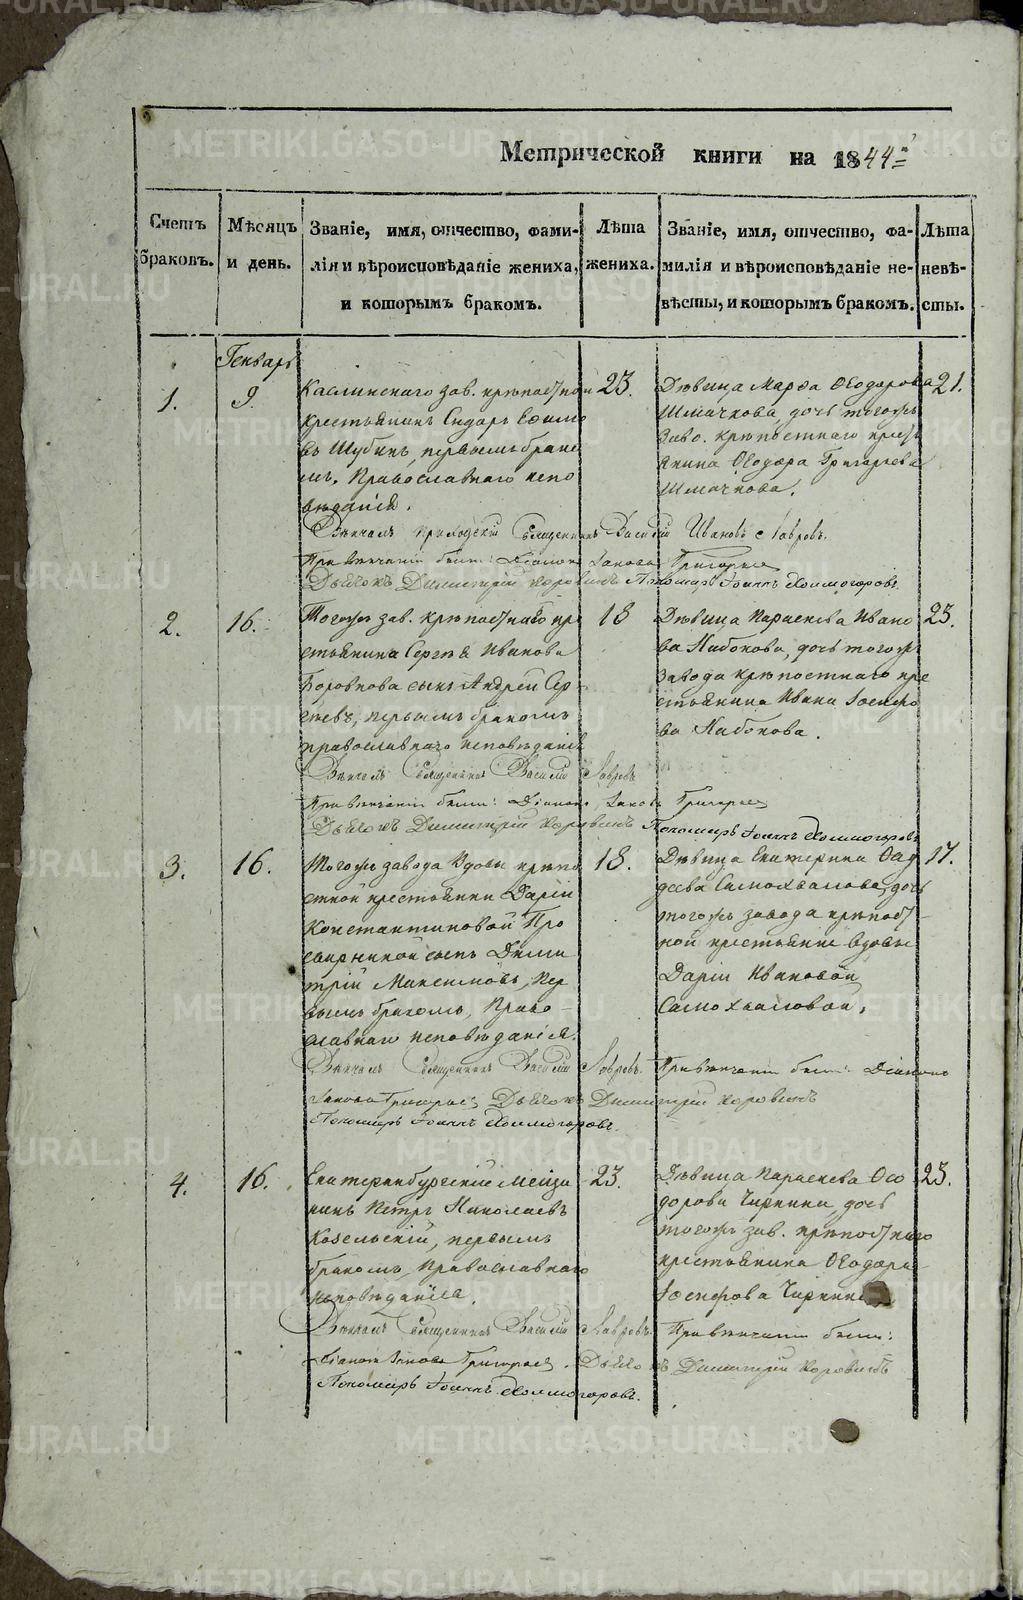 Метрической книги на 1844й
Счетъ браковъ.
Мѣсяцъ и день.
Званіе, имя, отчество, фамилія и вѣроисповѣданіе жениха, и которымъ бракомъ.
Лѣта жениха.
Званіе, имя, отчество, фамилія и вѣроисповѣданіе невѣсты, и которымъ бракомъ.
Лѣта невѣсты.
Генварь
1.
9
Каслинскаго зав. крѣпостной
крестьянинъ Сидоръ Ефимо
въ Шубинъ, первымъ брако
мъ, Православнаго испо
вѣданія.
23.
Дѣвица Марѳа Ѳеодорова
Шмачкова, дочь тогожъ
заво. крѣпостнаго крест
янина Ѳеодора Григорьева
Шмачкова.
21.
Вѣнчалъ приходскій Священникъ Василій Ивановъ Лавровъ.
При вѣнчаніи были: Діаконъ Іаковъ Григорьевъ
Дьячокъ Димитрій Коровинъ Пономарь Іоаннъ Холмогоровъ.
2.
16.
Тогожъ зав. крѣпостнаго кре
стьянина Сергѣя Иванова
Боровкова сынъ Андрей Сер
геевъ, первымъ бракомъ
православнаго исповѣданія
18
Дѣвица Параскева Ивано
ва Набокова, дочь тогожъ
завода крѣпостнаго кре
стьянина Ивана Іосифо
ва Набокова.
23.
Вѣнчалъ Священникъ Василій Лавровъ
При вѣнчаніи были: Діаконъ Іаковъ Григорьевъ
Дьячокъ Димитрій Коровинъ Пономарь Іоаннъ Холмогоровъ
3.
16.
Тогожъ завода вдовы крѣпо
стной крестьянки Даріи
Константиновой Про
свирниной сынъ Дими
трій Максимовъ, пер
вымъ бракомъ, Право-
славнаго исповѣданія.
18.
Дѣвица Екатерина Ѳад
деева Самохвалова, дочь
тогожъ завода крѣпост-
ной крестьянки вдовы
Даріи Ивановой
Самохваловой.
17.
Вѣнчалъ Священникъ Василій Лавровъ. При вѣнчаніи были: Діаконъ
Іаковъ Григорьевъ, Дьячокъ Димитрій Коровинъ
Пономарь Іоаннъ Холмогоровъ.
4.
16.
Екатеринбургскій мѣща
нинъ Петръ Николаевъ
Козельскій, первымъ
бракомъ, православнаго
исповѣданія.
23.
Дѣвица Параскева Ѳео
дорова Чиркина, дочь
тогожъ зав. крѣпостнаго
крестьянина Ѳеодора
Іосифова Чиркина
23.
Вѣнчалъ Священникъ Василій Лавровъ. При вѣнчаніи были:
Діаконъ Іаковъ Григорьевъ. Дьячокъ Димитрій Коровинъ
Пономарь Іоаннъ Холмогоровъ.
METRIKI.GASO-URAL.RU